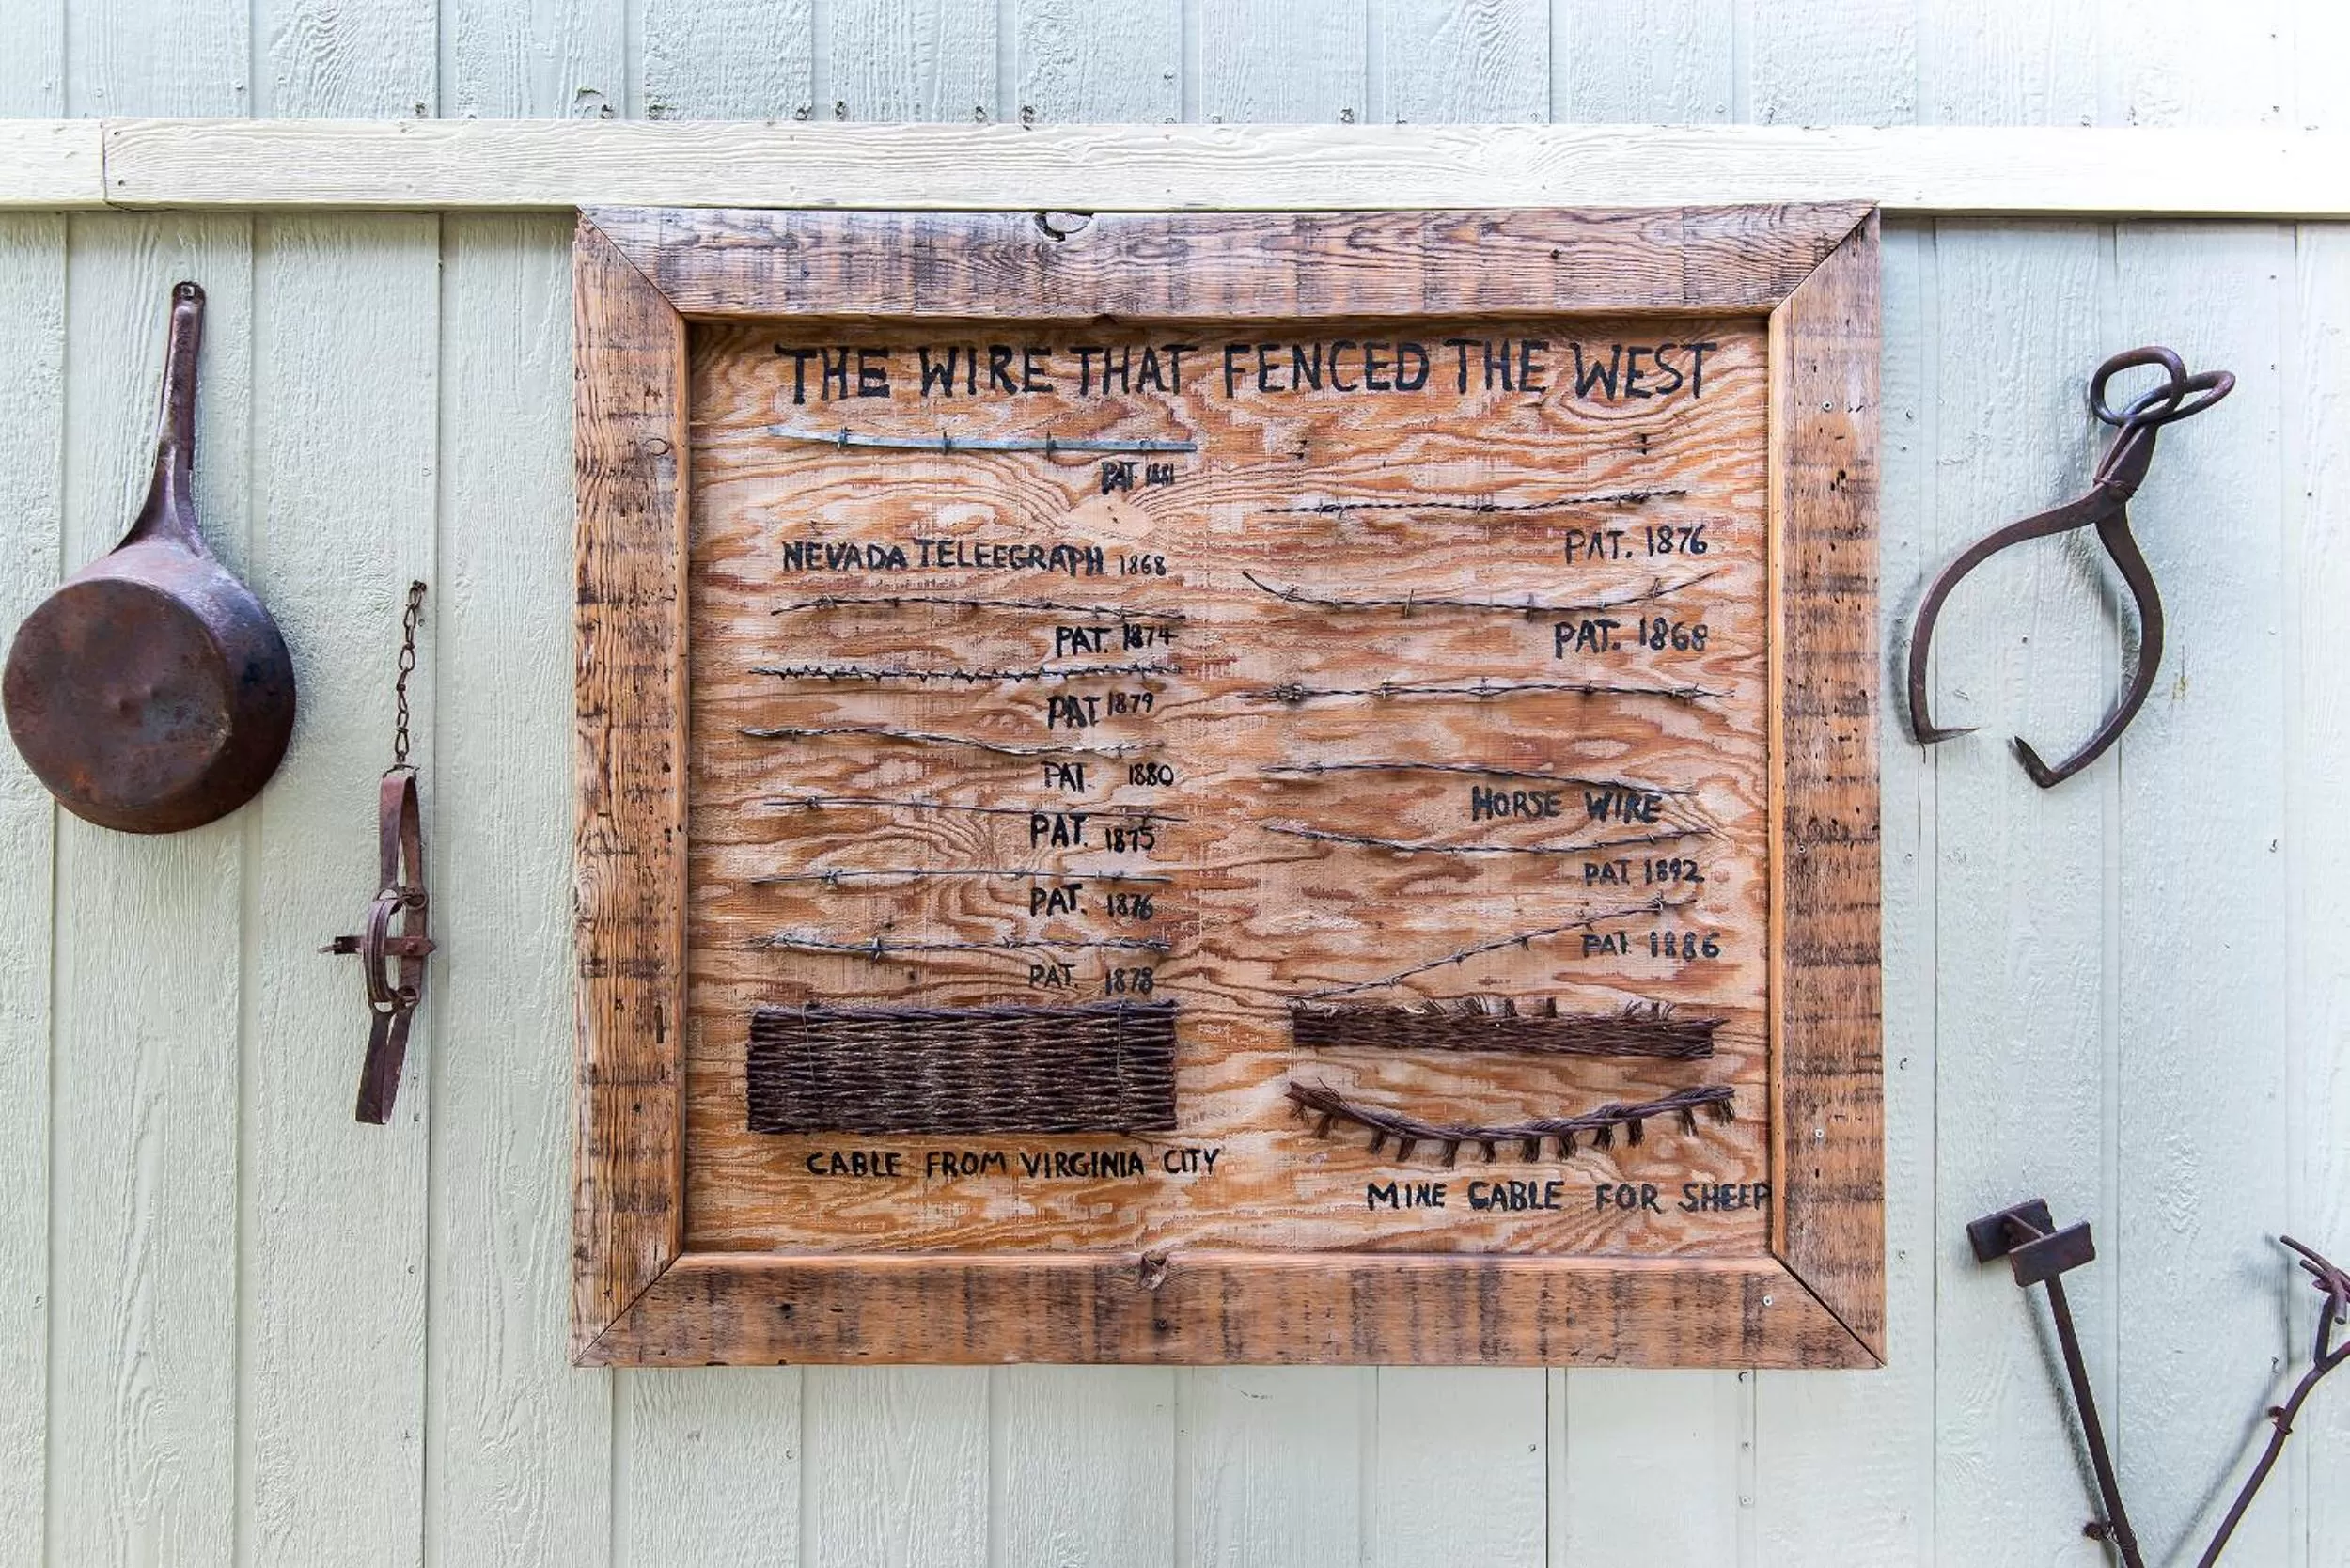 THE WIRE THAT FENCED THE WEST
PAT 1881
NEVADA TELEEGRAPH 1868
PAT. 1874
PAT 1879
PAT. 1880
PAT. 1875
PAT. 1876
PAT. 1878
CABLE FROM VIRGINIA CITY
PAT. 1876
PAT. 1868
HORSE WIRE
PAT 1892
PAT. 1886
MINE CABLE FOR SHEEP